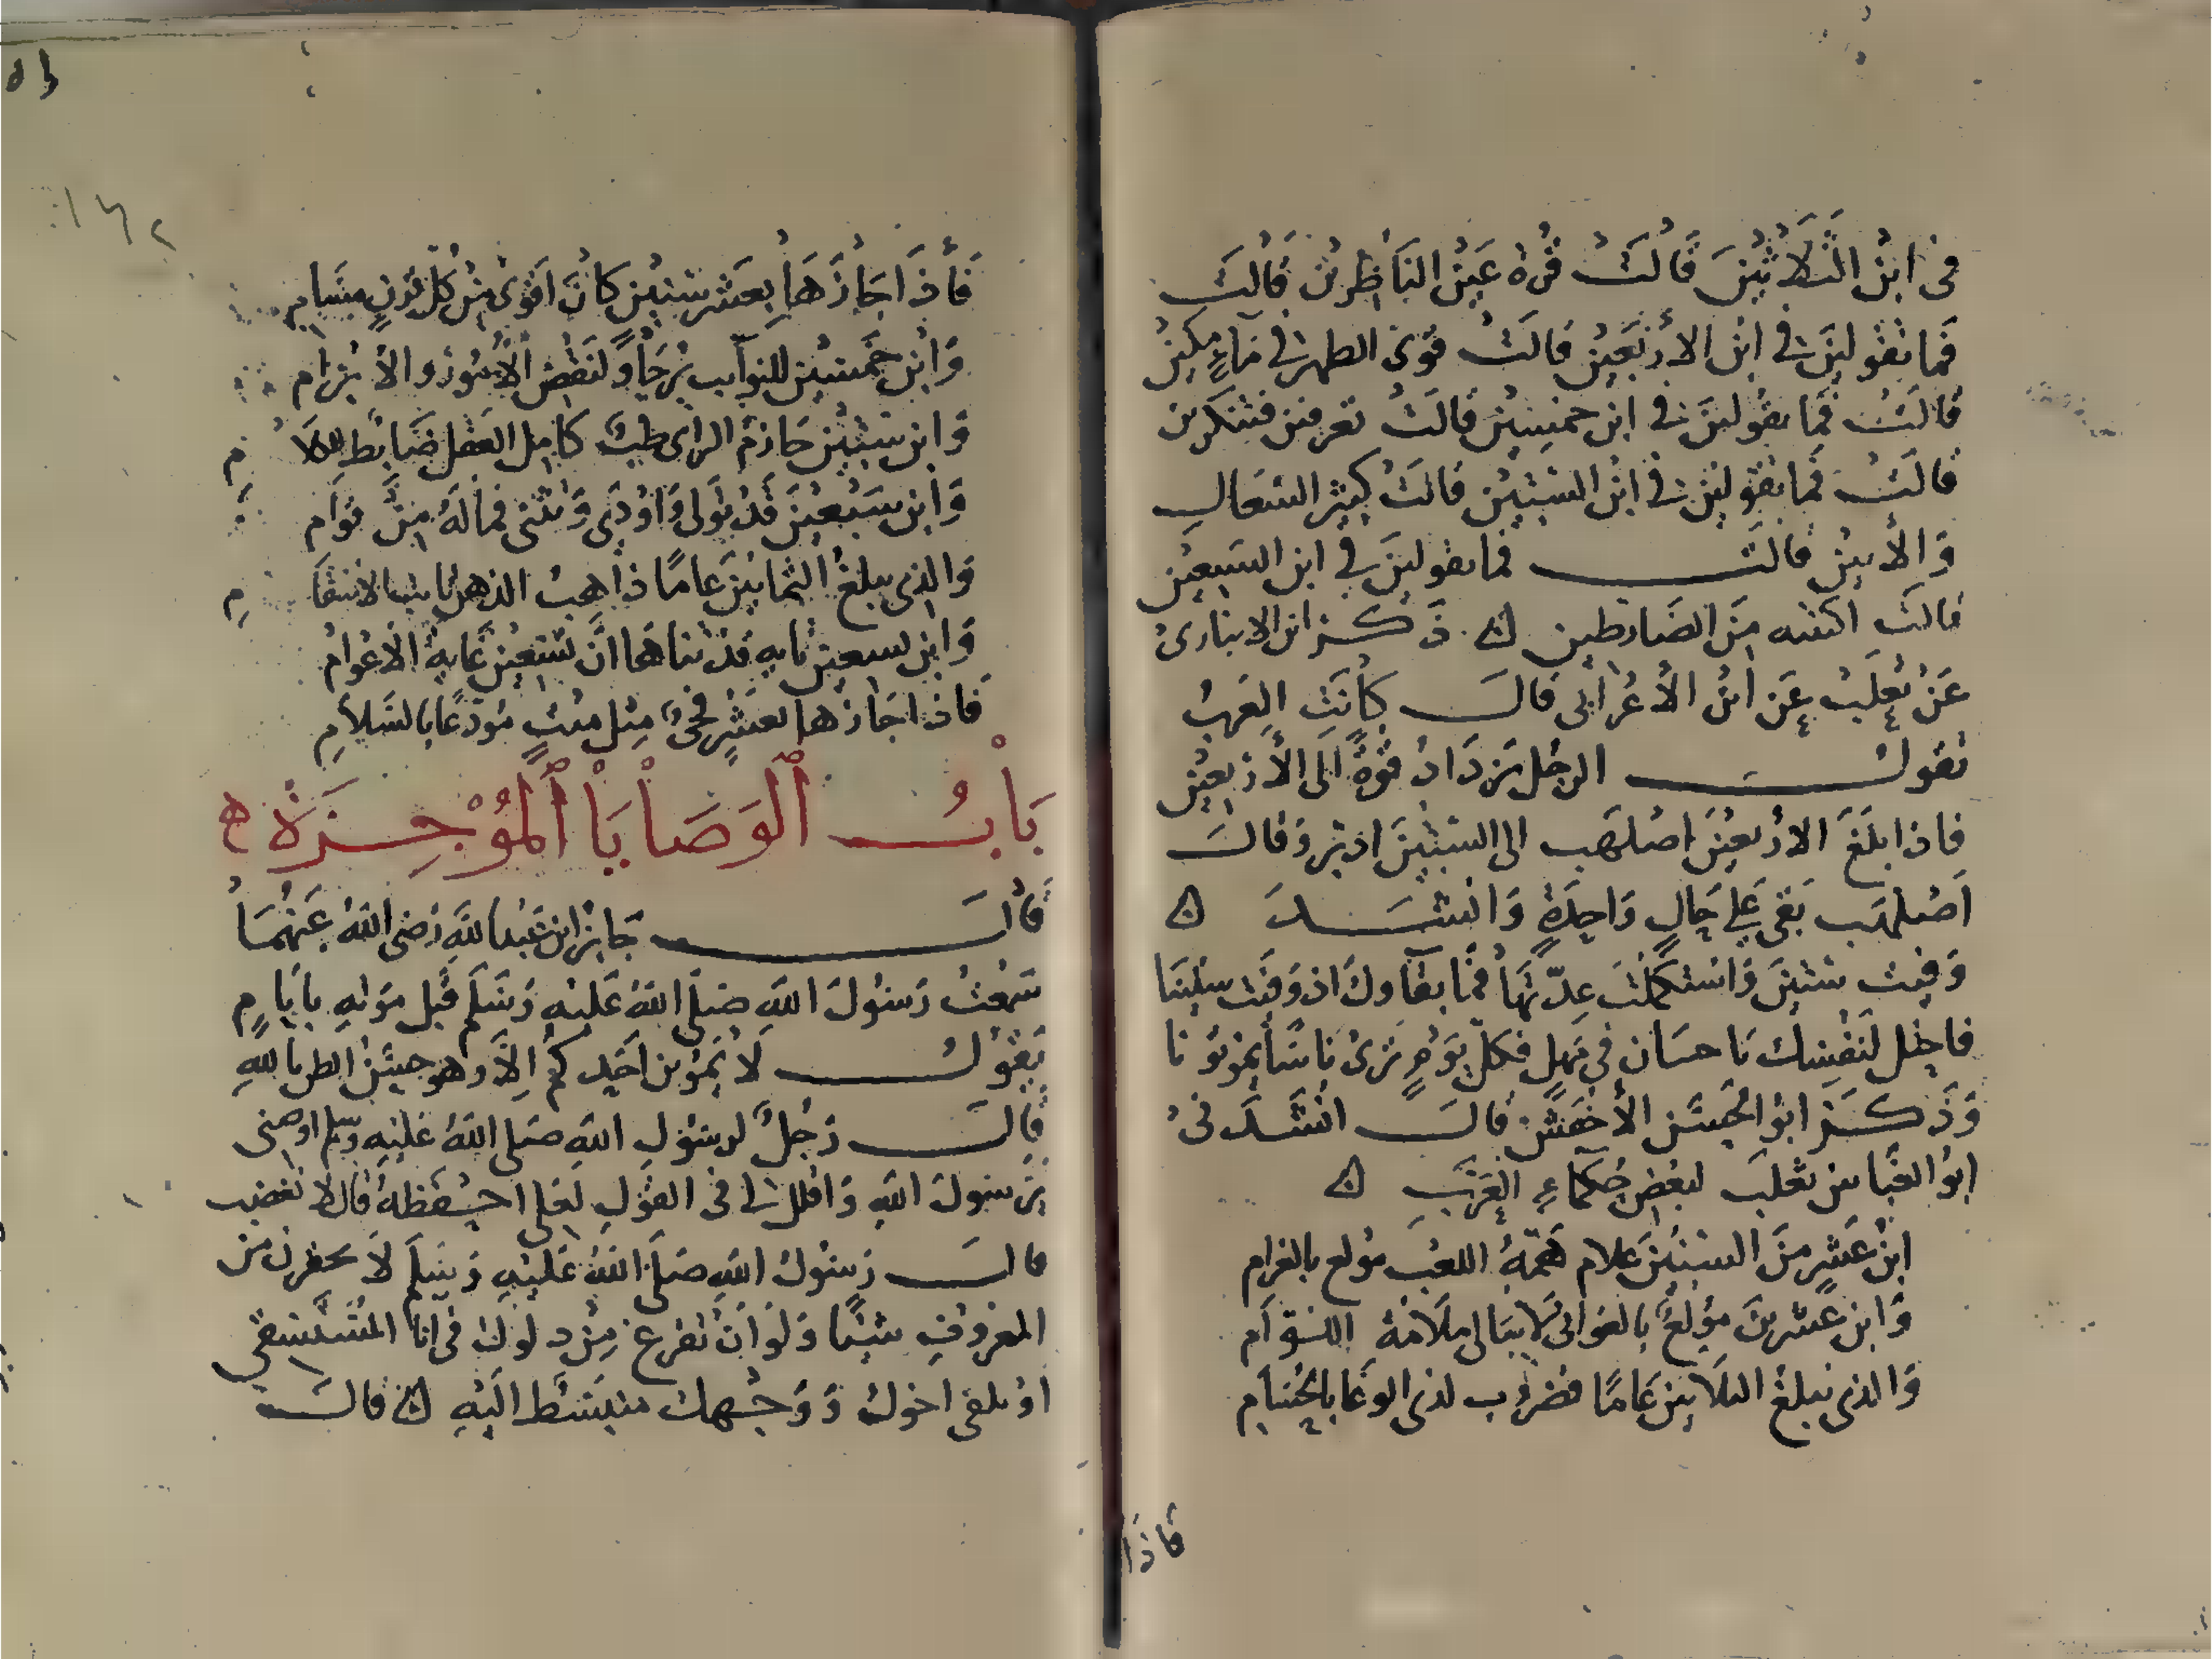 في ابن الثلاثين قالت قرة عين الناظرين قالت
فما تقولين في ابن الأربعين قالت قوى الظهر في ماء مكين
قالت فما تقولين في ابن خمسين قالت تعرفين فتنكرين
قالت فما تقولين في ابن الستين قالت كثير السعال
والأنين قالت فما تقولين في ابن السبعين
قالت اكتبه من الضارطين ذكر ابن الانباري
عن ثعلب عن ابن الأعرابي قال كانت العرب
تقول الرجل يزداد قوة إلى الأربعين
فاذا بلغ الأربعين اصلهب الى الستين ادبر وقال
اصلهب بقي على حال واحدة وانشد
وفيت ستين واستكملت عدتها فما بقاوك اذ وفيت ستينا
فاحتل لنفسك يا حسان في مهل فكل يوم ترى ناسا يموتونا
وذكر ابو الحسن الأخفش قال انشدني
ابو العباس ثعلب لبعض حكماء العرب
ابن عشر من السنين غلام همه اللعب مولع بالغرام
وابن عشرين مولع بالغواني لا يبالي ملامة اللوام
والذي يبلغ الثلاثين عاما فضروب لذي الوغا بالحسام
فاذا
١٤٢
فاذا جازها بعشر سنين كان اقوى من كل قرن مسام
وابن خمسين للنوآيب يرجا ولنقض الأمور والأبرام
وابن ستين حازم الراي طب كامل العقل ضابط للكلام
وابن سبعين قد تولى واودى وتثنى فماله من قوام
والذي يبلغ الثمانين عاما ذاهب الذهن
وابن تسعين تايه قد تناها ان تسعين غاية الأعوام
فاذا جازها بعشر فحي مثل ميت مودعا بالسلام
باب الوصايا الموجزة
قال جابر ابن عبد الله رضي الله عنهما
سمعت رسول الله صلى الله عليه وسلم قبل موته بايام
يقول لا يموتن احدكم الا وهو حسن الظن بالله
قال رجل لرسول الله صلى الله عليه وسلم اوصني
يرسول الله واقلل لي في القول لعلي احفظه قال لا تغضب
قال رسول الله صلى الله عليه وسلم لا تحقرن من
المعروف شيئا ولو ان تفرغ من دلوك في انا المستسقي
او تلقى اخوك ووجهك منبسط اليه قال